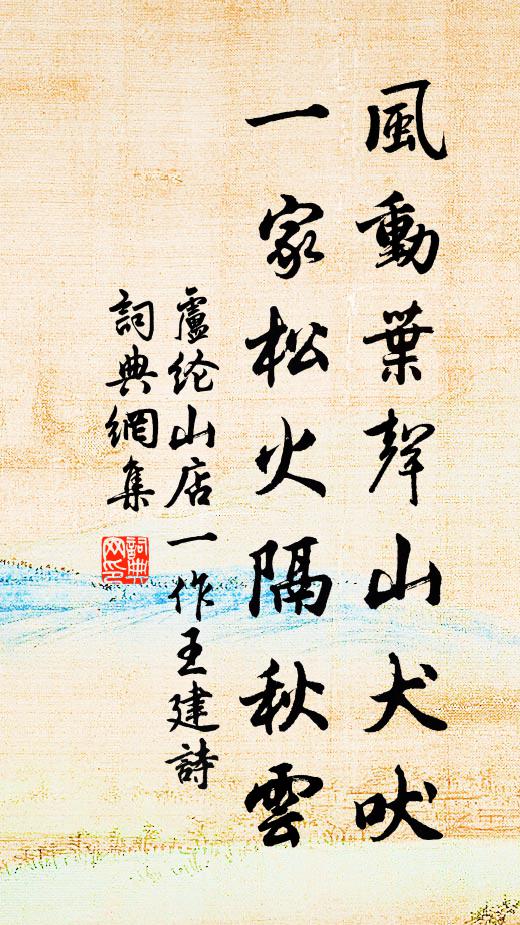 風動葉聲山犬吠
一家松火隔秋雲
盧纶山店一作王建詩
詞典網集
詞典
网印